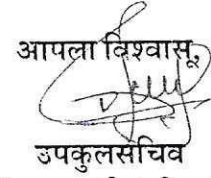 आपला विश्वासू,
उपकुलसचिव